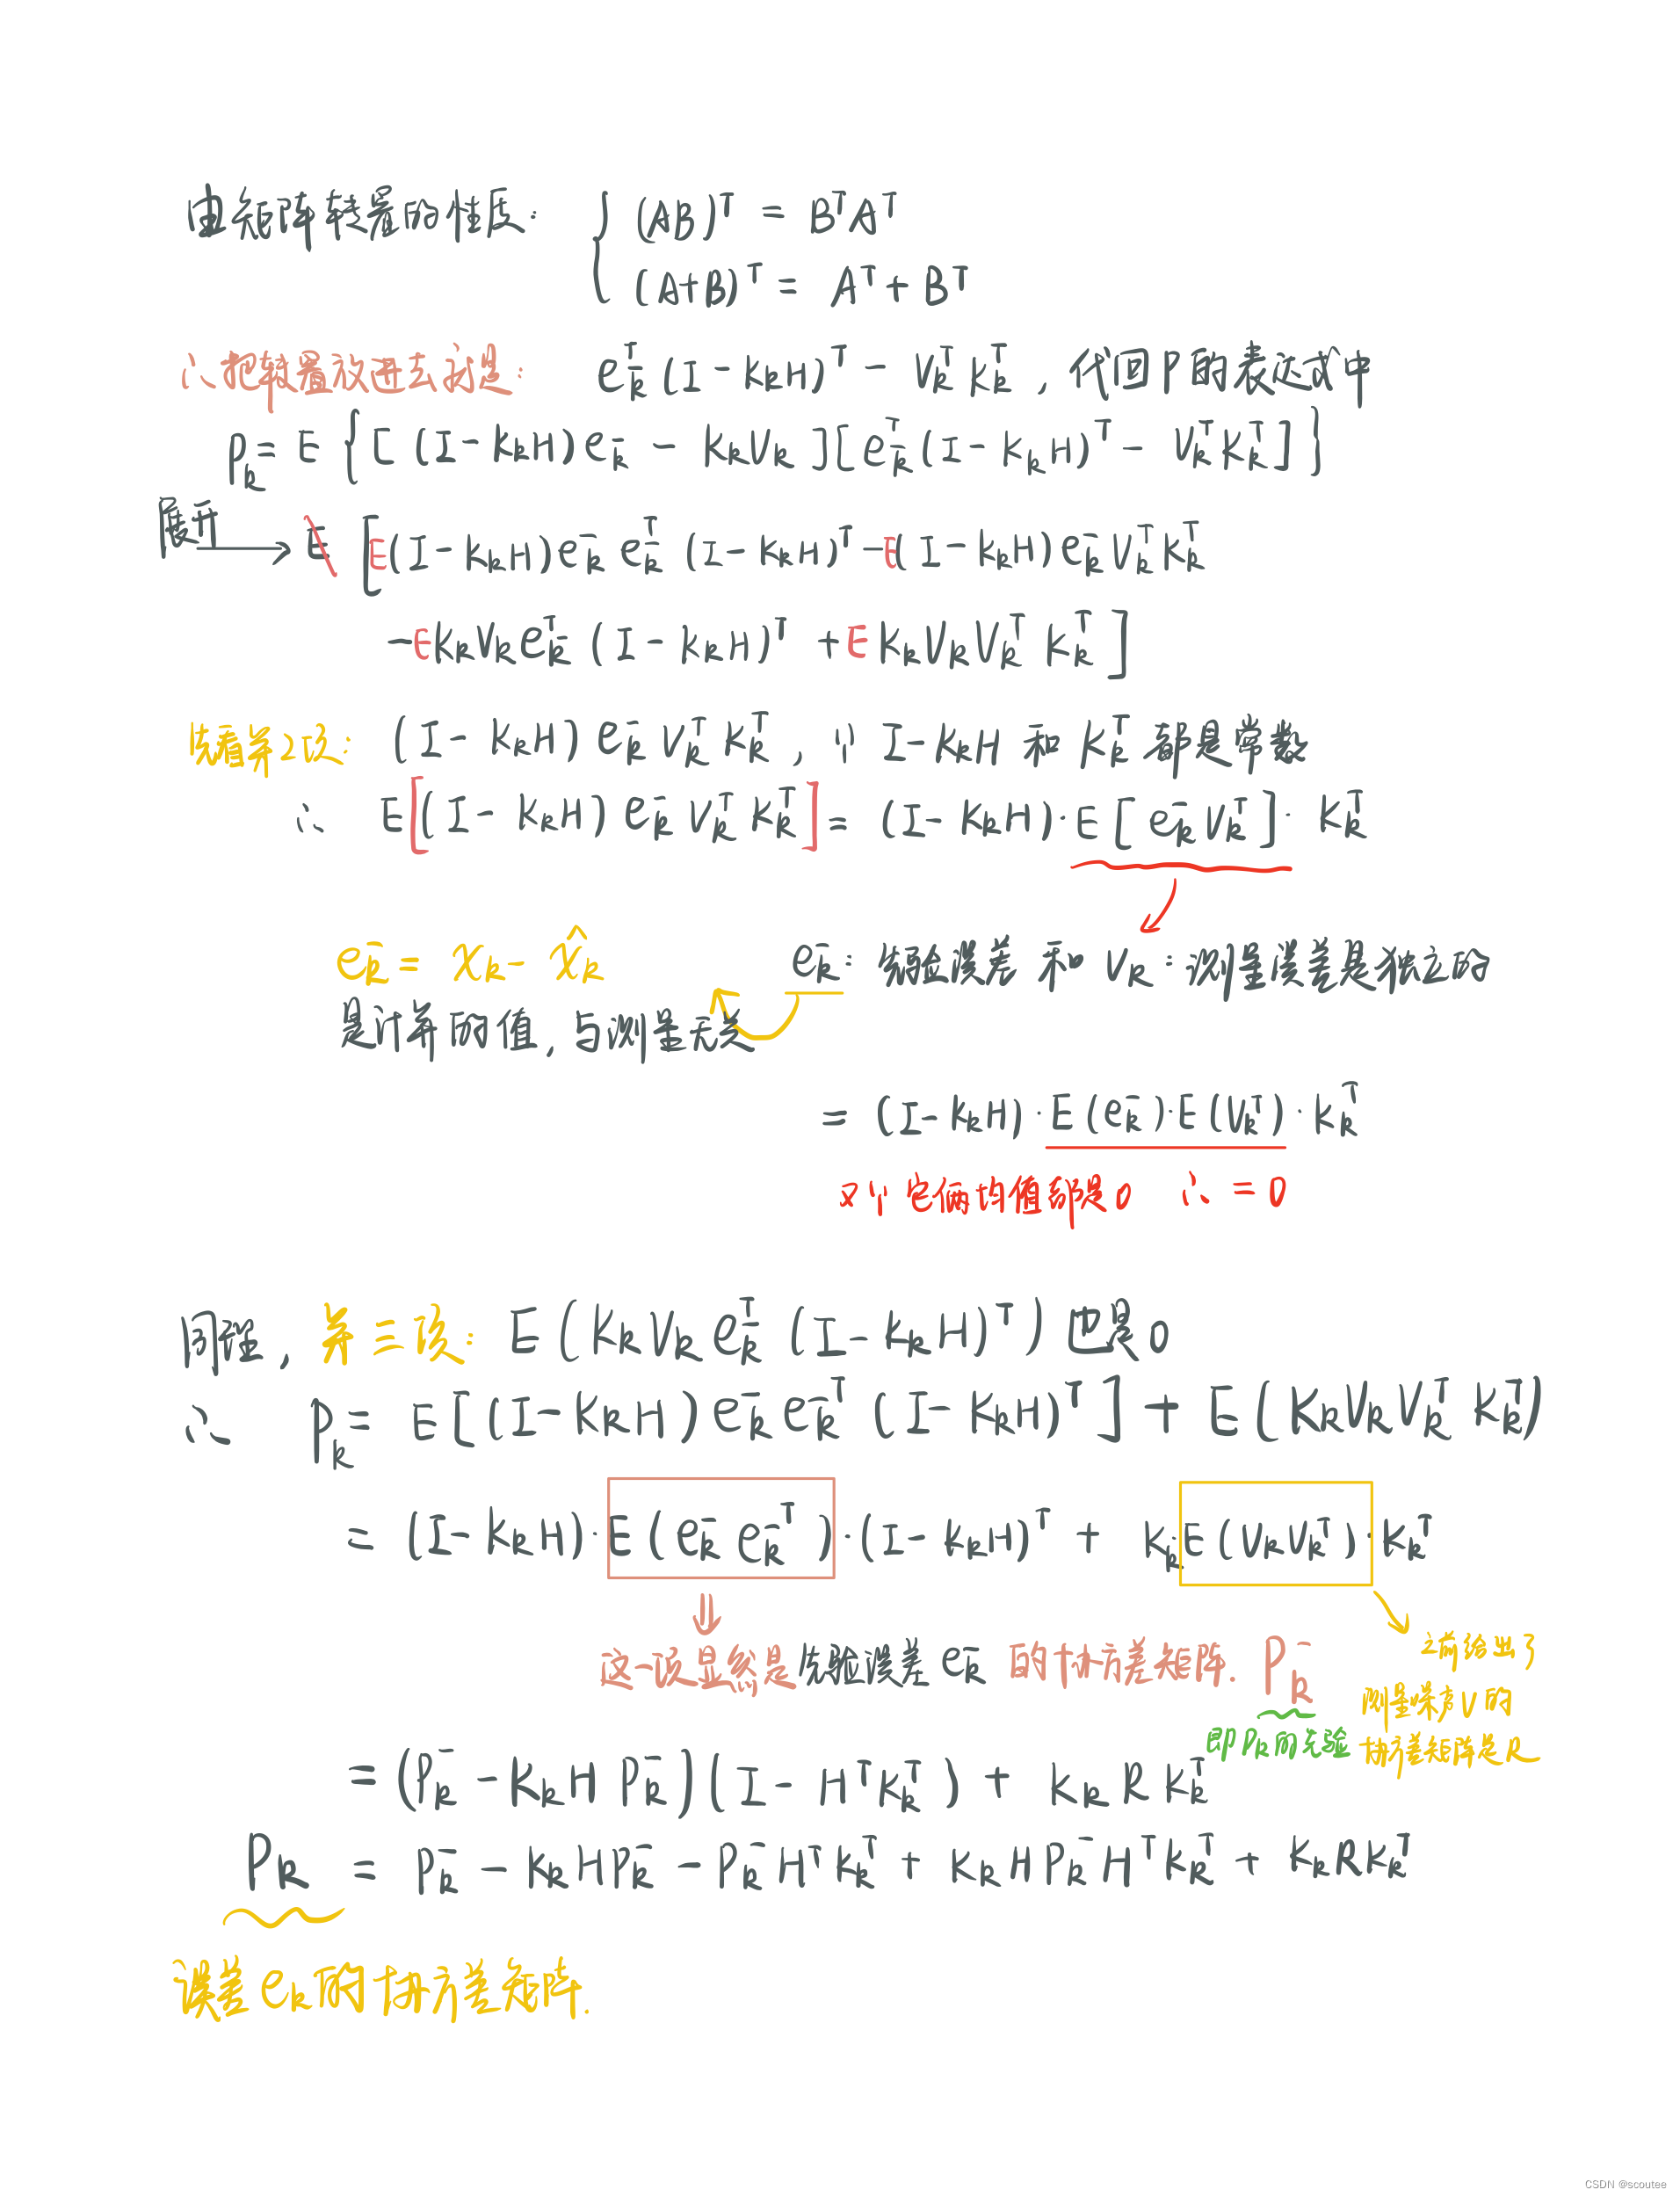 由矩阵转置的性质: { (AB)ᵀ = BᵀAᵀ
(A+B)ᵀ = Aᵀ + Bᵀ
∴把转置放进去就是: e_k⁻ᵀ (I - K_k H)ᵀ - V_kᵀ K_kᵀ , 代回P的表达式中
P_k = E { [ (I - K_k H) e_k⁻ - K_k V_k ] [ e_k⁻ᵀ (I - K_k H)ᵀ - V_kᵀ K_kᵀ ] }
展开 → E [ E (I - K_k H) e_k⁻ e_k⁻ᵀ (I - K_k H)ᵀ - E (I - K_k H) e_k⁻ V_kᵀ K_kᵀ
- E K_k V_k e_k⁻ᵀ (I - K_k H)ᵀ + E K_k V_k V_kᵀ K_kᵀ ]
先看第2项: (I - K_k H) e_k⁻ V_kᵀ K_kᵀ , ∵ I - K_k H 和 K_kᵀ 都是常数
∴ E [ (I - K_k H) e_k⁻ V_kᵀ K_kᵀ ] = (I - K_k H) · E [ e_k⁻ V_kᵀ ] · K_kᵀ
e_k⁻ = x_k - x̂_k⁻ e_k⁻: 先验误差 和 V_k: 测量误差是独立的
是计算的值, 与测量无关
= (I - K_k H) · E (e_k⁻) · E (V_kᵀ) · K_kᵀ
又∵它俩均值都是0 ∴ = 0
同理, 第三项: E (K_k V_k e_k⁻ᵀ (I - K_k H)ᵀ) 也是0
∴ P_k = E [ (I - K_k H) e_k⁻ e_k⁻ᵀ (I - K_k H)ᵀ ] + E (K_k V_k V_kᵀ K_kᵀ)
= (I - K_k H) · E (e_k⁻ e_k⁻ᵀ) · (I - K_k H)ᵀ + K_k E (V_k V_kᵀ) · K_kᵀ
这一项显然是先验误差 e_k⁻ 的协方差矩阵. P_k⁻
即P_k的先验
之前给出了
测量噪声V的
协方差矩阵是R
= (P_k⁻ - K_k H P_k⁻) (I - Hᵀ K_kᵀ) + K_k R K_kᵀ
P_k = P_k⁻ - K_k H P_k⁻ - P_k⁻ Hᵀ K_kᵀ + K_k H P_k⁻ Hᵀ K_kᵀ + K_k R K_kᵀ
误差 e_k 的协方差矩阵.
CSDN @scoutee